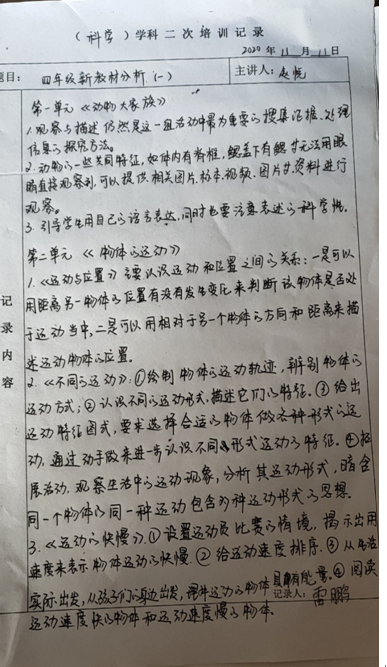 （科学）学科二次培训记录
2020年11月11日
题目： 四年级新教材分析（一） 主讲人：赵悦
第一单元《动物大家族》
1.观察与描述仍然是这一组活动中最为重要的搜集证据、处理
信息的探究方法。
2.动物的一些共同特征，如体内有脊柱，鳃盖下有鳃等无法用眼
睛直接观察到，可以提供相关图片、标本、视频、图片等资料进行
观察。
3.引导学生用自己的语言表达，同时也要注意表述的科学性。
第二单元《物体的运动》
1.《运动与位置》主要认识运动和位置之间的关系：一是可以
用距离另一物体的位置有没有发生变化来判断该物体是否处
于运动当中，二是可以用相对于另一个物体的方向和距离来描
述运动物体的位置。
2.《不同的运动》：①绘制物体的运动轨迹，辨别物体的
运动方式；②认识不同的运动形式，描述它们的特征。③给出
运动特征图式，要求选择合适的物体做各种形式的运
动，通过动手做来进一步认识不同形式运动的特征。④拓
展活动，观察生活中的运动现象，分析其运动形式，暗含
同一个物体的同一种运动包含多种运动形式的思想。
3.《运动的快慢》.①设置运动员比赛的情境，揭示出用
速度来表示物体运动的快慢.②给运动速度排序.③从生活
实际出发，从孩子们的身边出发，理解运动的物体具有能量.④阅读
运动速度快的物体和运动速度慢的物体.
记录内容
记录人：雷鹏